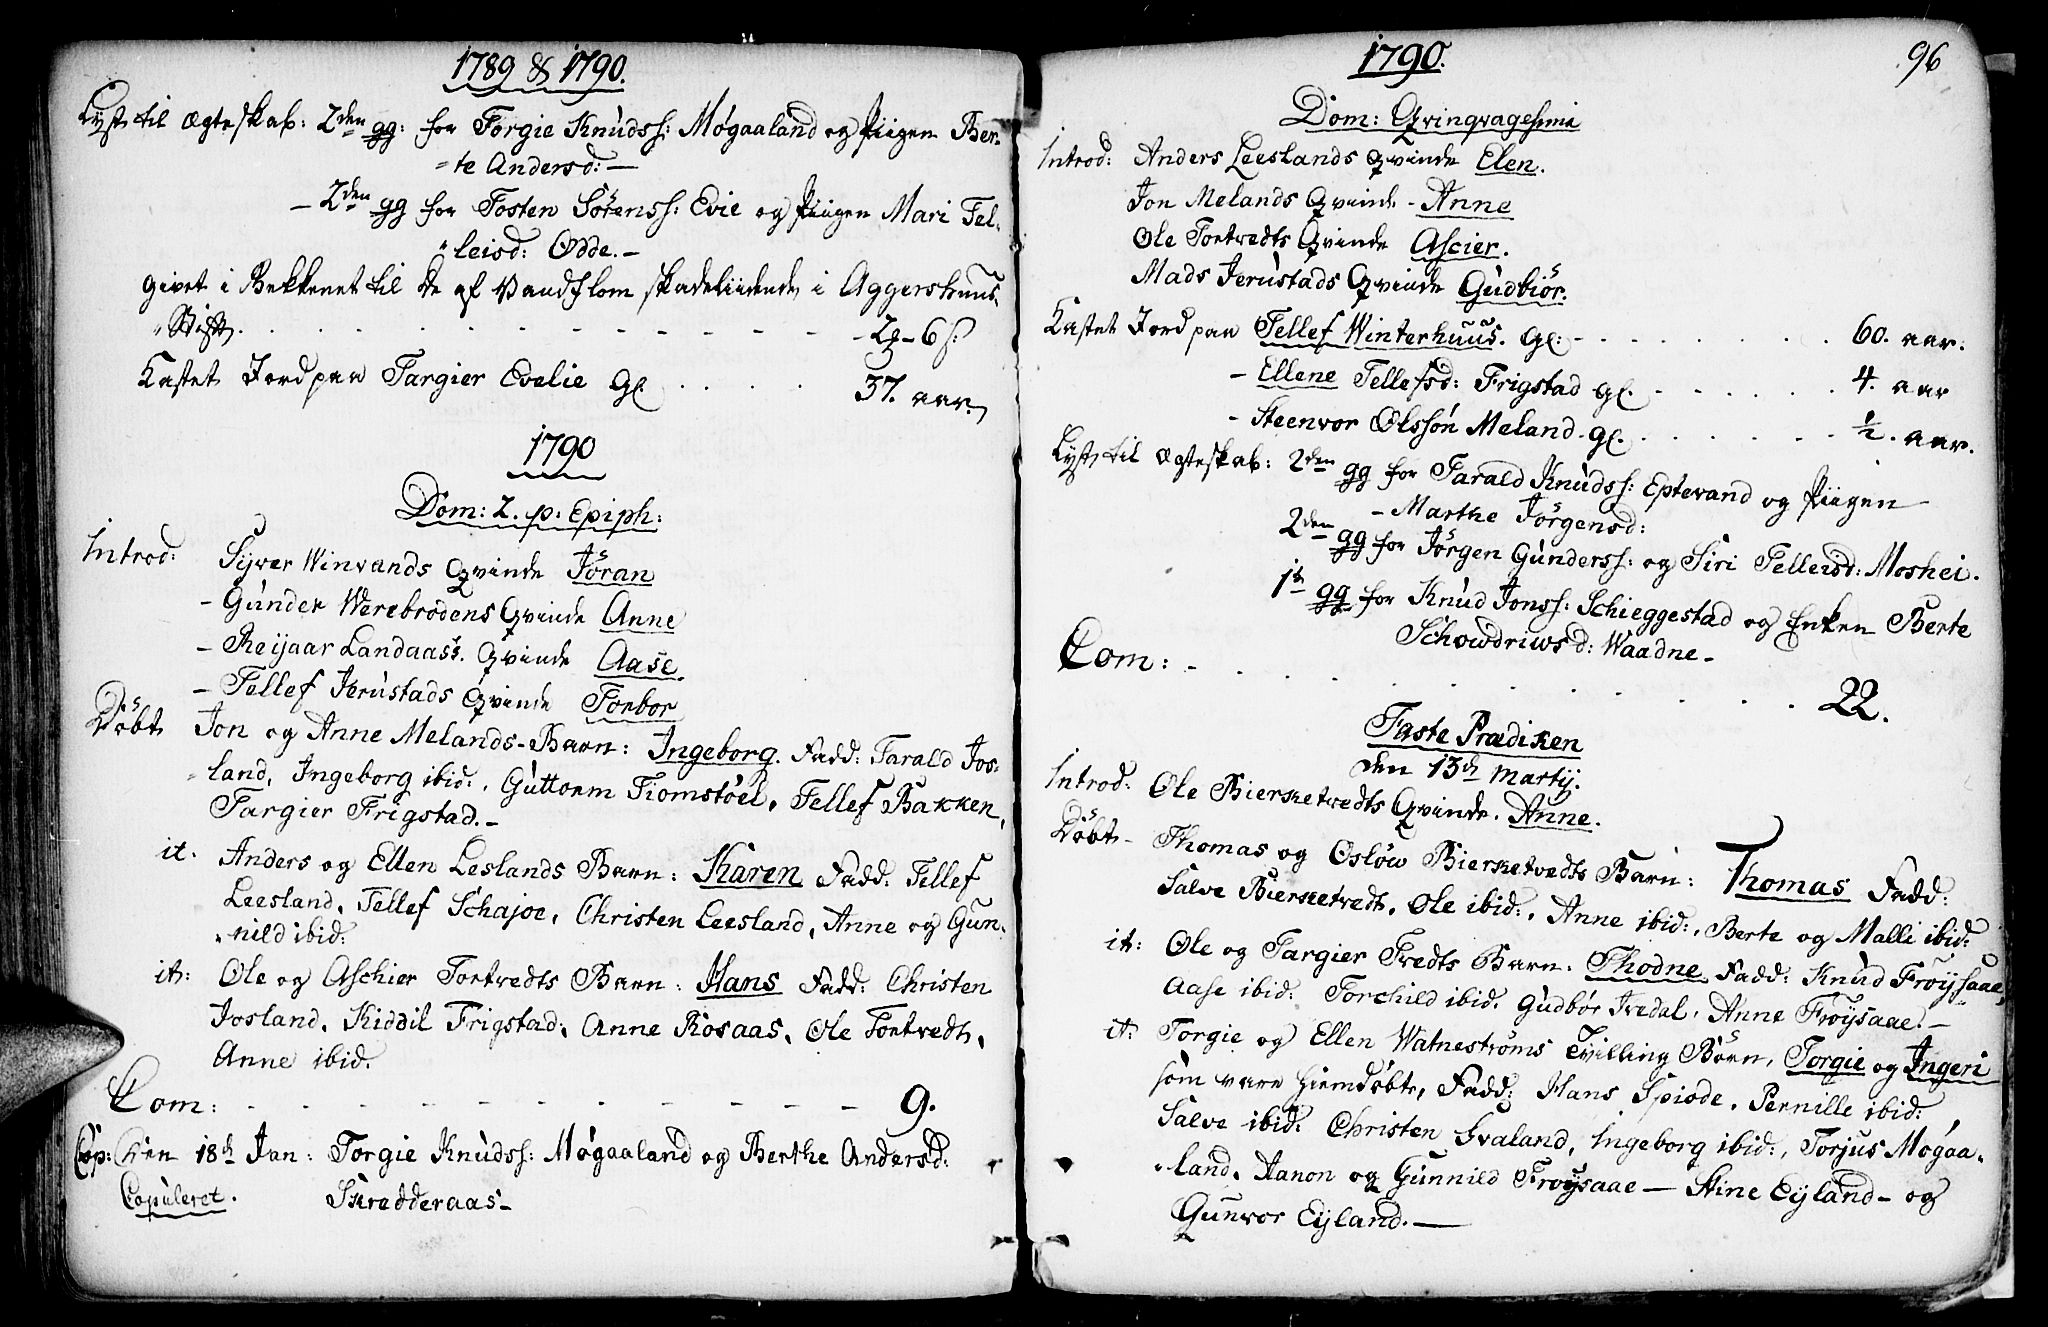 1789 & 1790.
Lyst til Ægteskab: 2den gg: for Torgie Knùdss: Møgaaland og Piigen Ber-
te Andersd: —
— 2den gg for Tosten Sørenss: Evie og Piigen Mari Tel-
leisd: Odde. —
givet i Bekkenet til De af Vandflom skadeliidende i Aggershuus
Stift. . . . . . . . . . . . 6 s:
Kastet Jord paa Targier Evelie gl. . . . . 37. aar.
1790
Dom: 2. p: Epiph:
Introd: Syver Winvands Qvinde Jöran
- Gùnder Werebrodens Qvinde Anne
- Reijaar Landaass. Qvinde Aase.
- Tellef Jerùstads Qvinde Torbor
Döbt Jon og Anne Melands Barn: Ingeborg. Fadd: Tarald Jos-
land, Ingeborg ibid:, Gùttorm Tiomstöel, Tellef Bakken,
Targier Frigstad. —
it: Anders og Ellen Leslands Barn: Karen Fadd: Tellef
Leesland, Tellef Schajoe, Christen Leesland, Anne og Gùn-
nild ibid:
it: Ole og Aschier Tortvedts Barn: Hans Fadd: Christen
Josland, Kiddil Frigstad, Anne Rosaas, Ole Tortvedt,
Anne ibid.
Com: - - - - - - - - - - - 9.
Cop: Den 18de Jan: Torgie Knùdss: Møgaaland og Berthe Andersd:
Copùleret. Skredderaas —
1790. 96
Dom: Qvinqvagesima
Introd: Anders Leeslands Qvinde Elen.
Jon Melands Qvinde - Anne
Ole Tortvedts Qvinde Ascier.
Mads Jerùstads Qvinde Gùdbiör.
Kastet Jord paa Tellef Winterhuus. gl: - . . . . . . . 60. aar.
- Ellene Tellefsd: Frigstad gl. - . . . . . 4. aar
- Steenvor Olssön Meland. gl. . . . . . . ½. aar.
Lyst til Ægteskab: 2den gg for Tarald Knùdss: Eptevand og Piigen
- Marthe Jörgensd:
2den gg for Jörgen Gùnderss: og Siri Telleisd: Moshei.
1te gg for Knùd Jonss: Schieggestad og Enken Berte
Waadne —
Com: - . . . . . . . . . . 22.
Faste Prædiken
den 13de Martij.
Introd: Ole Bierketvedts Qvinde. Anne.
Döbt - Thomas og Oslöw Bierketvedts Barn: Thomas Fadd:
Salve Bierketvedt, Ole ibid:, Anne ibid:, Berte og Malli ibid:
it: Ole og Targier Tvedts Barn: Thodne Fadd: Knùd Fröysaae,
Aase ibid: Torchild ibid. Gùdbör Ivedal, Anne Fröysaae. —
it: Torgie og Ellen Watneströms Tvilling Börn, Torgie og Ingeri
som vare hiemdøbte, Fadd: Hans Spiøde, Pernille ibid:
Salve ibid. Christen Fvaland, Ingeborg ibid:, Torjus Møgaa-
land, Aanon og Gùnnild Fröysaae — Stine Eyland — og
Gùnvor Eyland. —